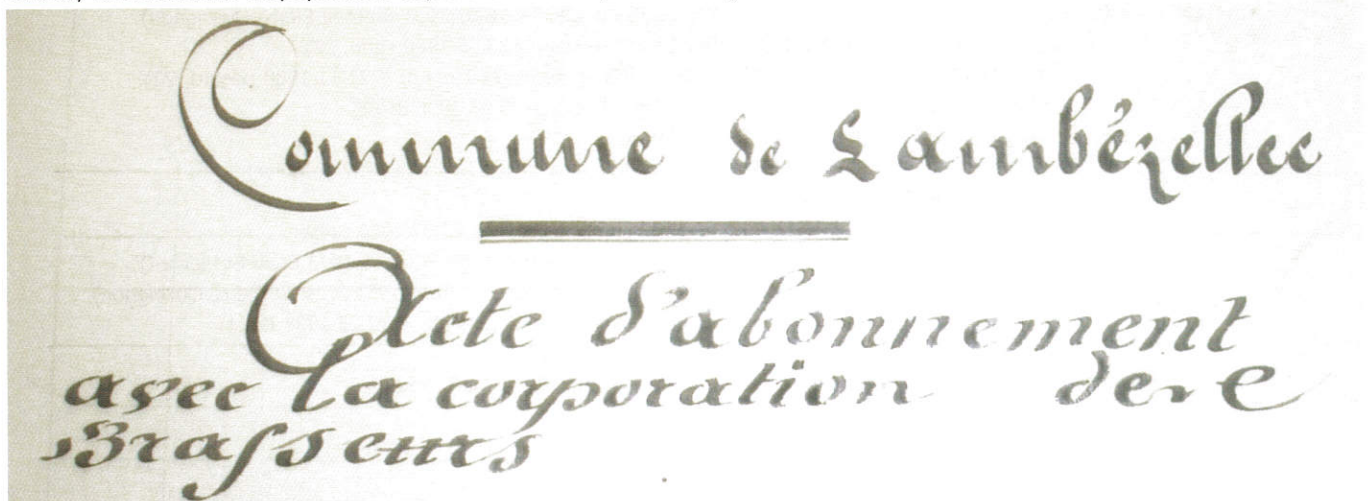 Commune de Lambézellec
Acte d'abonnement
avec la corporation des
Brasseurs